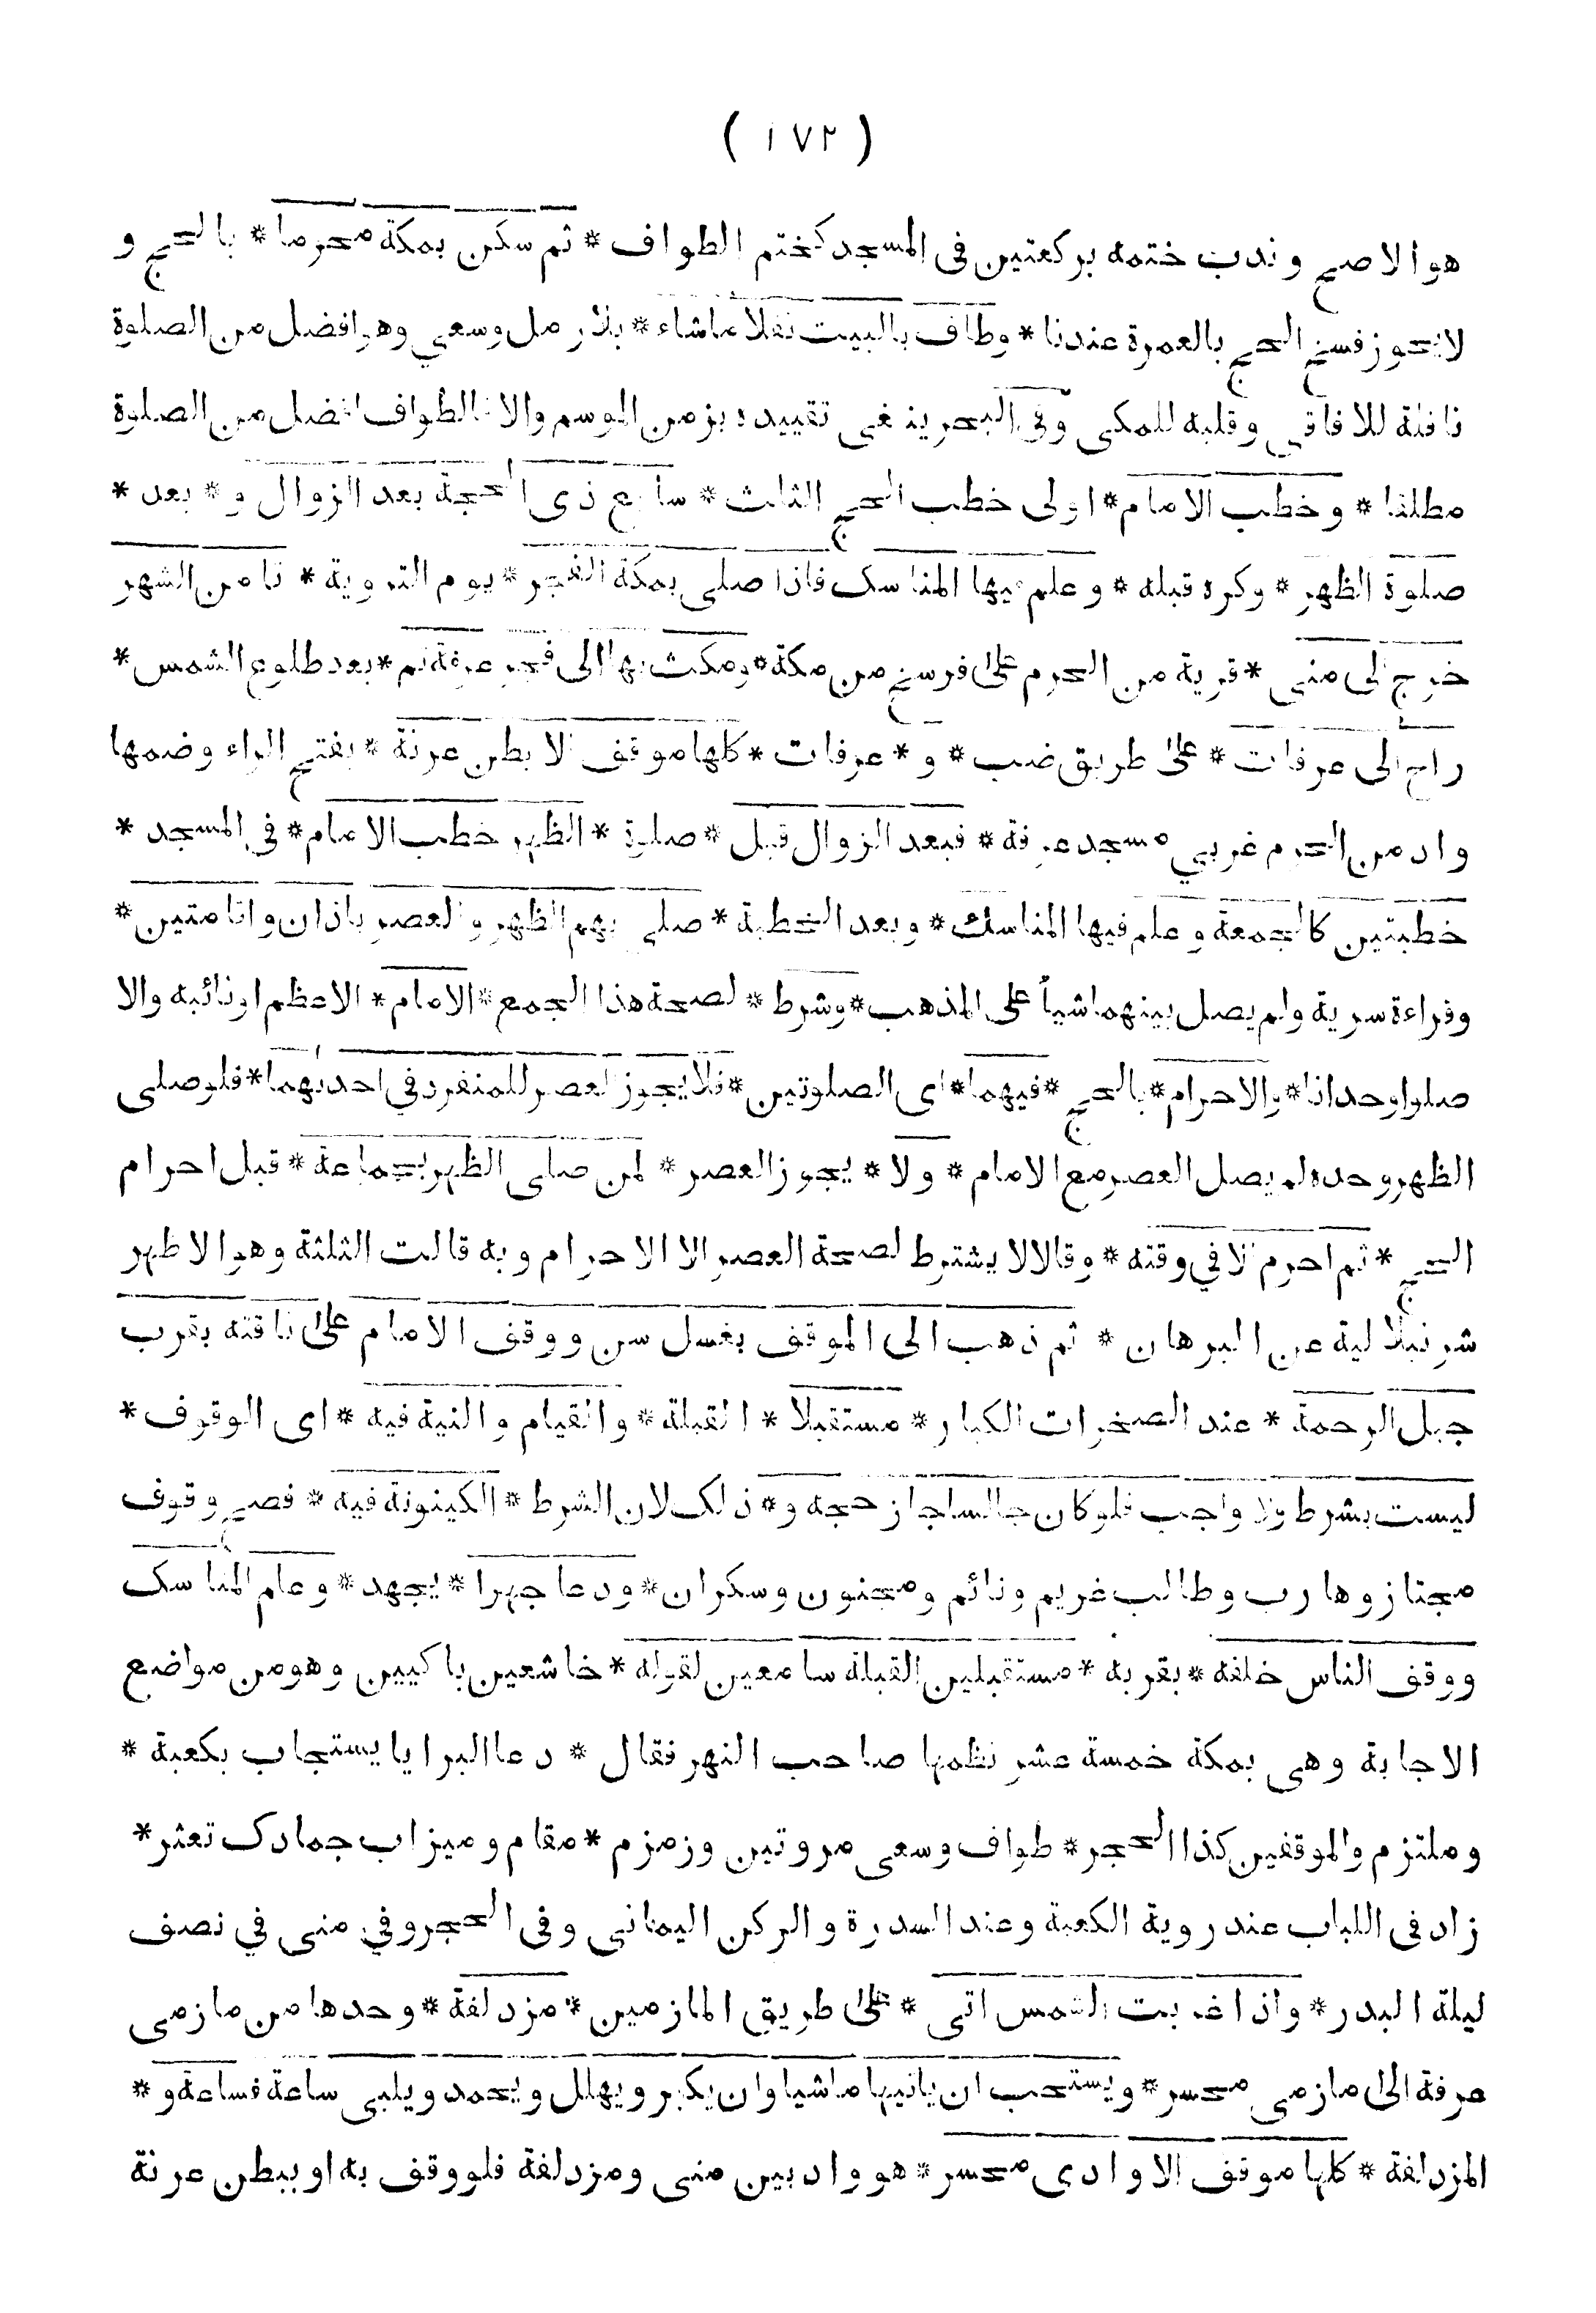 ( ١٧٢ )
هو الاصح وندب ختمه بركعتين فى المسجد كختم الطواف * ثم سكن بمكة محرما * بالحج و
لا يجوز فسخ الحج بالعمرة عندنا * وطاف بالبيت نفلا ماشاء * بلا رمل وسعي وهو افضل من الصلوة
نافلة للافاقى وقلبه للمكى وفى البحر ينبغى تقييده بزمن الموسم والا فالطواف افضل من الصلوة
مطلقا * وخطب الامام * اولى خطب الحج الثلث * سابع ذى الحجة بعد الزوال و * بعد *
صلوة الظهر * وكره قبله * وعلم فيها المناسك فاذا صلى بمكة الفجر * يوم التروية * ثامن الشهر
خرج الى منى * قرية من الحرم على فرسخ من مكة * ومكث بها الى فجر عرفة ثم * بعد طلوع الشمس *
راح الى عرفات * على طريق ضب * و * عرفات * كلها موقف الا بطن عرنة * بفتح الراء وضمها
واد من الحرم غربي مسجد عرفة * فبعد الزوال قبل * صلوة * الظهر خطب الامام * فى المسجد *
خطبتين كالجمعة وعلم فيها المناسك * وبعد الخطبة * صلى بهم الظهر والعصر باذان واقامتين *
وقراءة سرية ولم يصل بينهما شيأ على المذهب * وشرط * لصحة هذا الجمع * الامام * الاعظم او نائبه والا
صلوا وحدانا * والاحرام * بالحج * فيهما * اى الصلوتين * فلا يجوز العصر للمنفرد في احدٰهما * فلو صلى
الظهر وحده لم يصل العصر مع الامام * ولا * يجوز العصر * لمن صلى الظهر بجماعة * قبل احرام
الحج * ثم احرم الا في وقته * وقالا لا يشترط لصحة العصر الا الاحرام وبه قالت الثلثة وهو الاظهر
شرنبلالية عن البرهان * ثم ذهب الى الموقف بغسل سن ووقف الامام على ناقته بقرب
جبل الرحمة * عند الصخرات الكبار * مستقبلا * القبلة * والقيام والنية فيه * اى الوقوف *
ليست بشرط ولا واجب فلو كان جالسا جاز حجه و * ذلك لان الشرط * الكينونة فيه * فصح وقوف
مجتاز وهارب وطالب غريم ونائم ومجنون وسكران * ودعا جهرا * يجهد * وعلم المناسك
ووقف الناس خلفه * بقربه * مستقبلين القبلة سامعين لقوله * خاشعين باكيين وهو من مواضع
الاجابة وهى بمكة خمسة عشر نظمها صاحب النهر فقال * دعا البرايا يستجاب بكعبة *
وملتزم والموقفين كذا الحجر * طواف وسعى مروتين وزمزم * مقام وميزاب جمارك تعثر *
زاد فى اللباب عند روية الكعبة وعند السدرة والركن اليمانى وفى الحجر وفي منى في نصف
ليلة البدر * واذا غربت الشمس اتى * على طريق المازمين * مزدلفة * وحدها من مازمى
عرفة الى مازمى محسر * ويستحب ان ياتيها ماشيا وان يكبر ويهلل ويحمد ويلبى ساعة فساعة و *
المزدلفة * كلها موقف الا وادى محسر * هو واد بين منى ومزدلفة فلو وقف به او ببطن عرنة